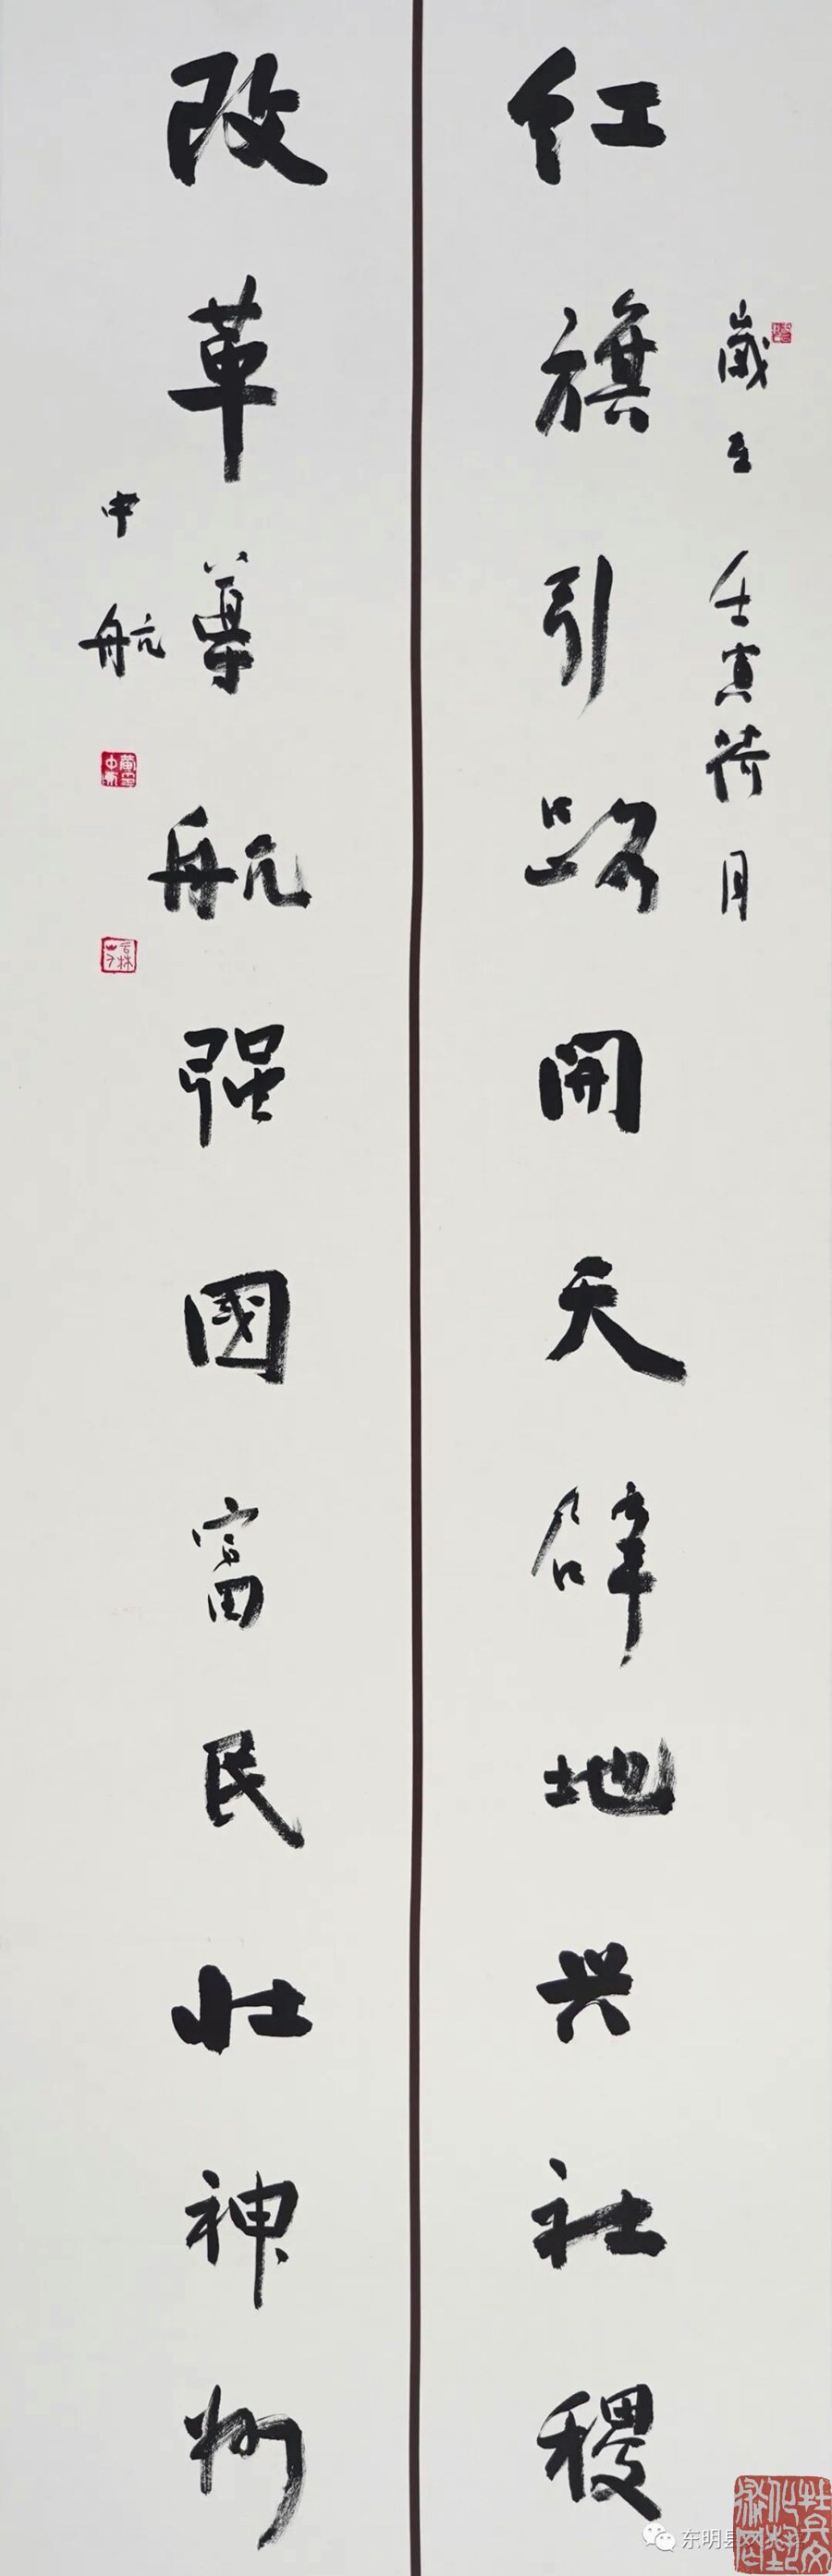 红旗引路開天辟地兴社稷
歲在壬寅荷月
改革導航强國富民壮神州
中航
东明县